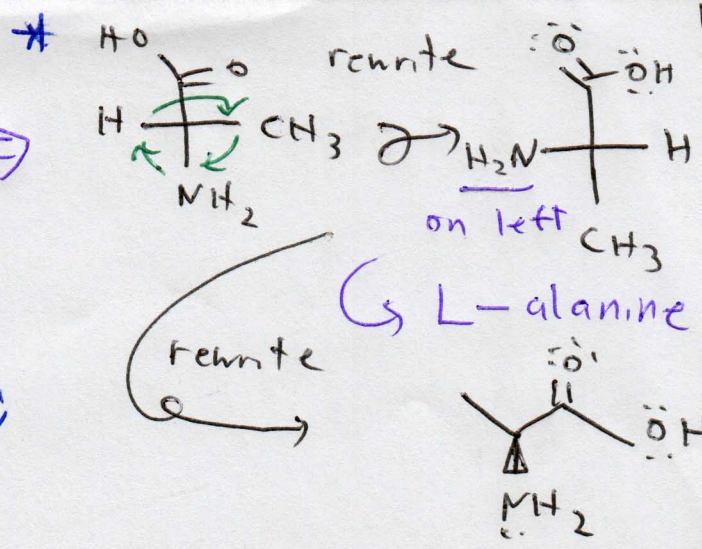 *
HO
O
H
CH3
NH2
rewrite
O
OH
H2N
H
on left
CH3
L-alanine
rewrite
O
OH
NH2